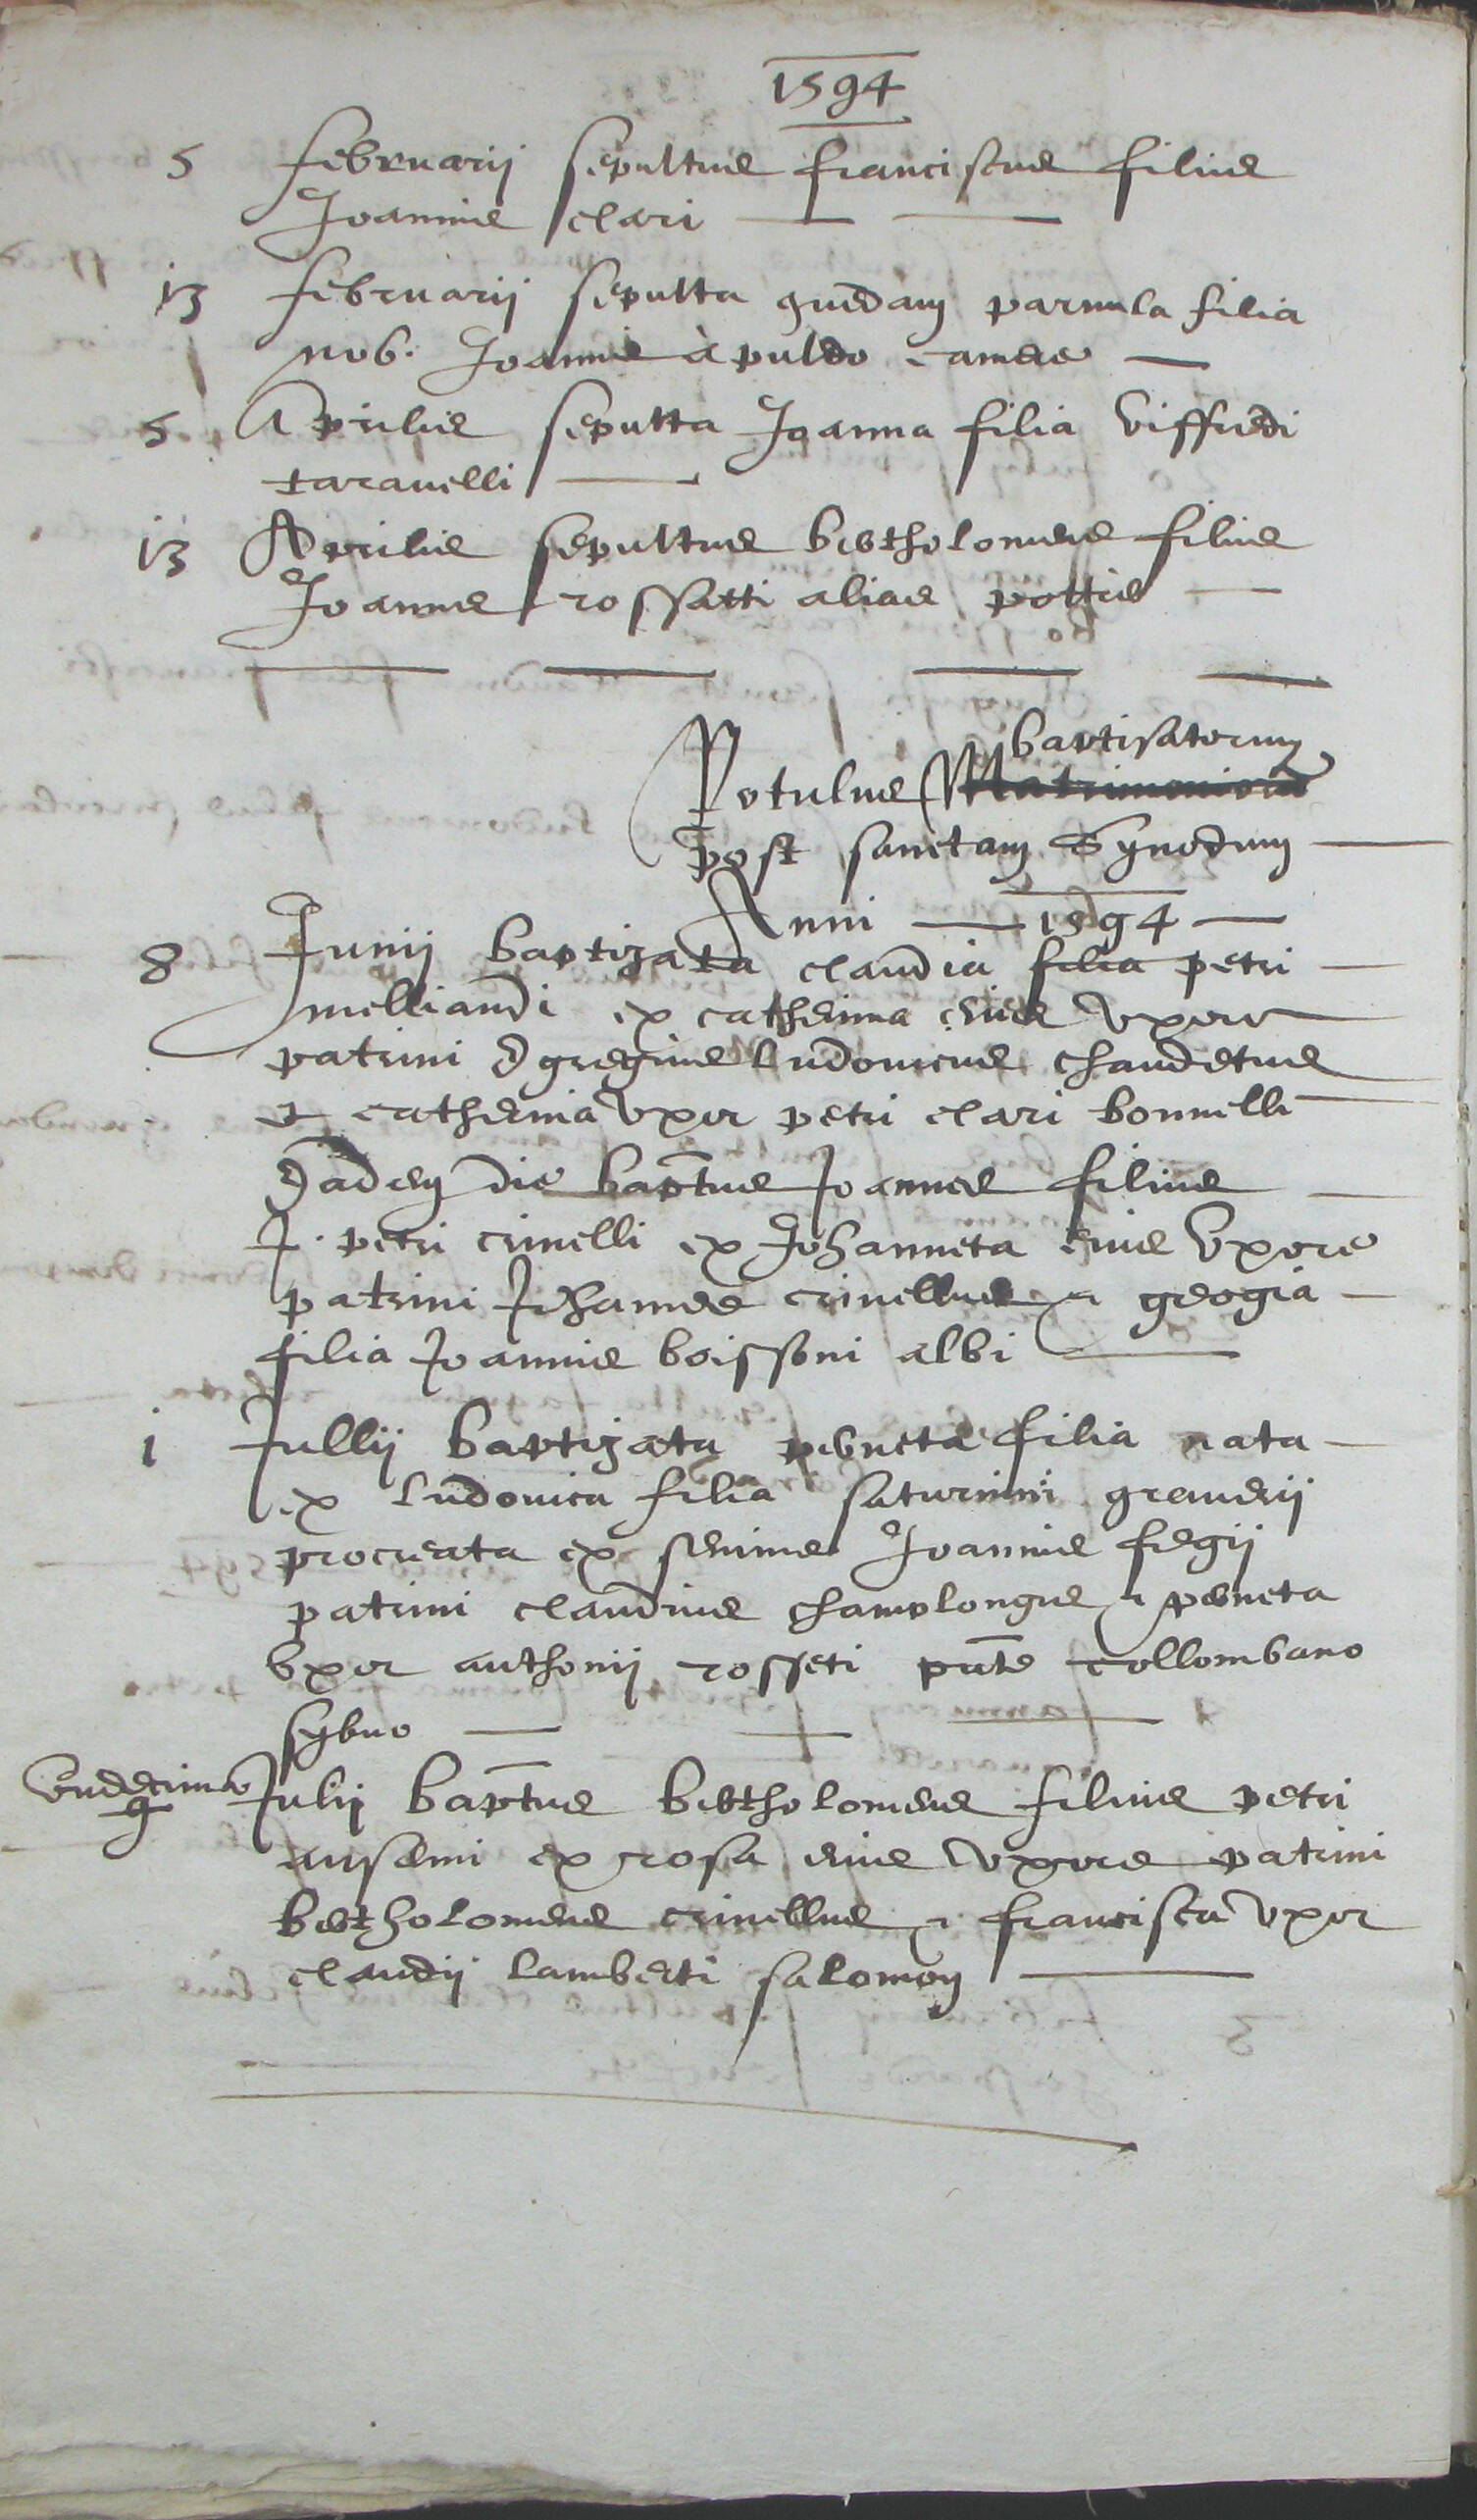 1594
5 februarii sepultus franciscus filius
Joannis clari
13 februarii sepulta quedam parvula filia
nob. Joannis à puteo
5 Aprilis sepulta Joanna filia viffredi
taravelli
13 Aprilis sepultus bertholomeus filius
Joannis rossatti alias pottis
baptisatorum
Rotulus Matrimoniorum
post sanctam Synodum
Anni 1594
8 Junii baptizata claudia filia petri
melliandi ex catherina eius uxore
patrini Egregius ludovicus chaudetus
et catherina uxor petri clari bonnelli
Eadem die baptus Joannes filius
J. petri crinelli ex Johanneta eius uxore
patrini Johannes crinellus et georgia
filia Joannis boissoni albi
1 Jullii baptizata perneta filia nata
ex ludovica filia saturnini
procreata ex semine Joannis fegii
patrini claudius champlongus et perneta
uxor anthonii rosseti pnte collombano
undecima Julii baptus bertholomeus filius petri
ansermi ex rosa eius uxore patrini
bertholomeus crinellus et francisca uxor
claudii lamberti salomon